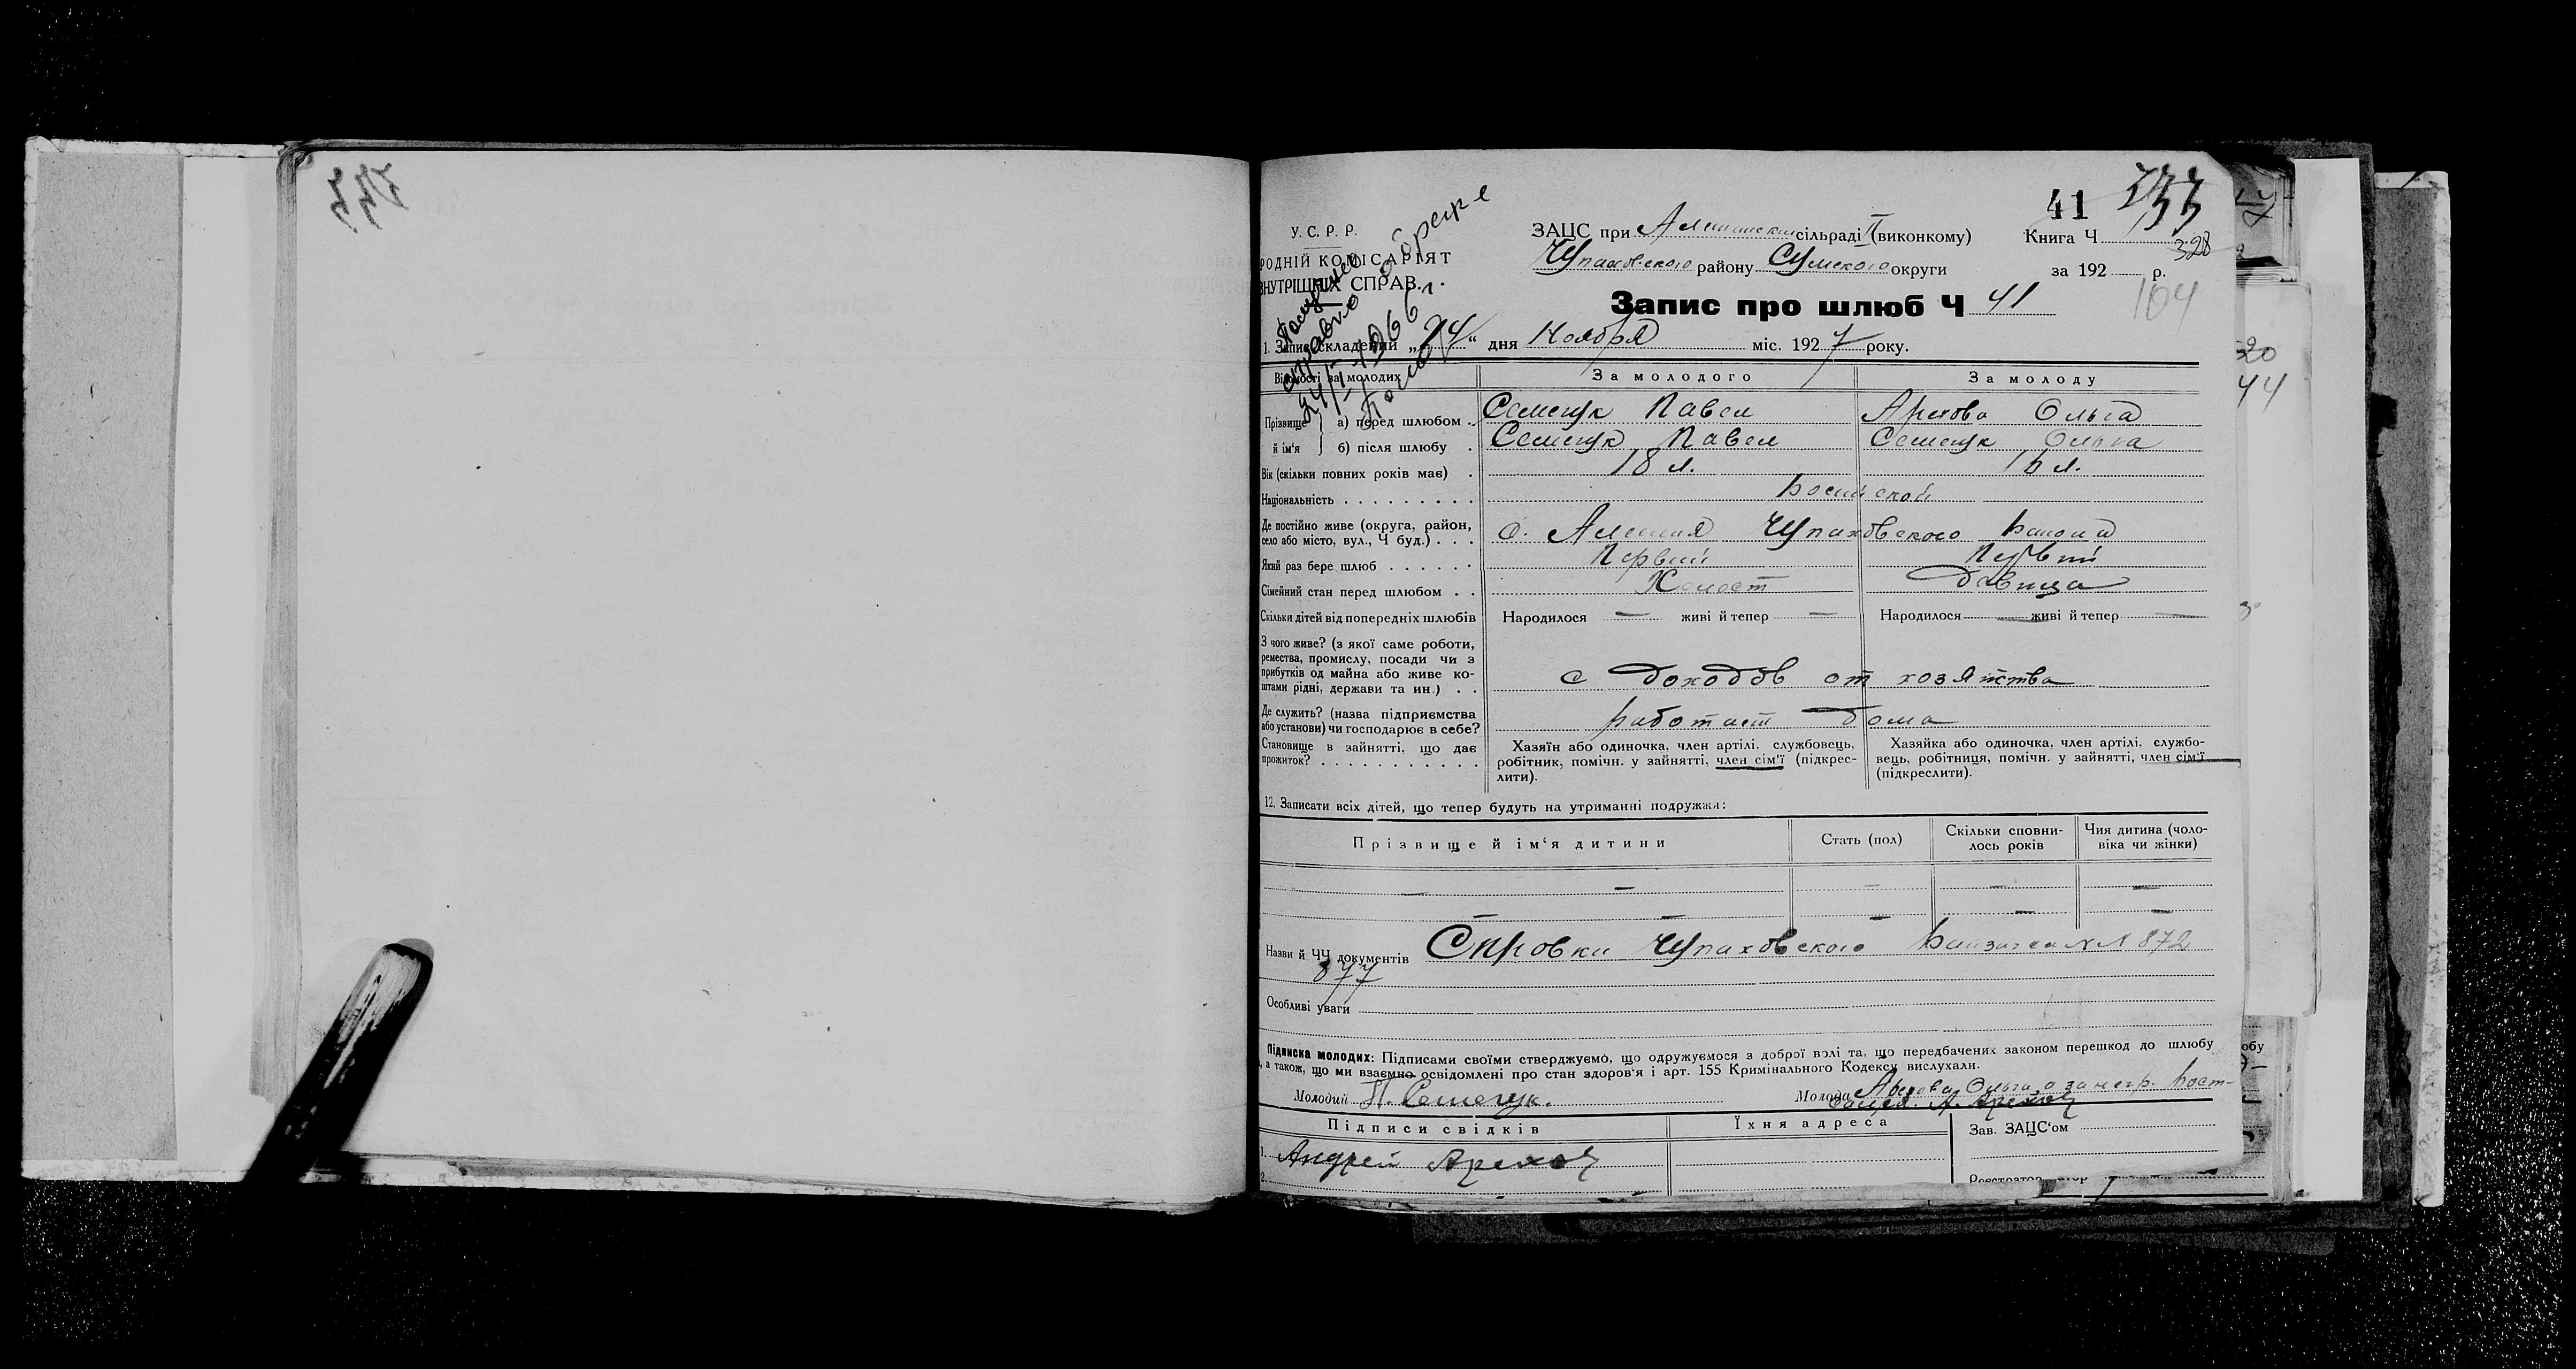 41
328
104
У. С. Р. Р.
РОДНІЙ КОМІСАРІЯТ
ВНУТРІШНІХ СПРАВ.
ЗАЦС при сільраді (виконкому) Книга Ч
Чупаховского району Сумского округи за 192 р.
Запис про шлюб Ч 41
1. Запис складений „24“ дня Ноября міс. 1927 року.
Получено
справка о браке
24/I-1966 г.
Відомості за молодих За молодого За молоду
Прізвище й ім'я а) перед шлюбом Семещук Павел Арехова Ольга
б) після шлюбу Семещук Павел Семещук Ольга
Вік (скільки повних років має) 18 л. 16 л.
Національність
Де постійно живе (округа, район,
село або місто, вул., Ч буд.) с. Алешня Чупаховского Района
Який раз бере шлюб Первий Первий
Сімейний стан перед шлюбом Холост Девица
Скільки дітей від попередніх шлюбів Народилося — живі й тепер — Народилося — живі й тепер —
З чого живе? (з якої саме роботи,
ремества, промислу, посади чи з
прибутків од майна або живе ко-
штами рідні, держави та ин.) с доходов от хозяйства
Де служить? (назва підприємства
або установи) чи господарює в себе? Работает дома
Становище в зайнятті, що дає
прожиток?
Хазяїн або одиночка, член артілі, службовець,
робітник, помічн. у зайнятті, член сім'ї (підкрес-
лити).
Хазяйка або одиночка, член артілі, службо-
вець, робітниця, помічн. у зайнятті, член сім'ї
(підкреслити).
12. Записати всіх дітей, що тепер будуть на утриманні подружжя:
Прізвище й ім'я дитини Стать (пол) Скільки сповни-
лось років Чия дитина (чоло-
віка чи жінки)
Назви й ЧЧ документів Справки Чупаховского 872
877
Особливі уваги
Підписка молодих: Підписами своїми стверджуємо, що одружуємося з доброї волі та, що передбачених законом перешкод до шлюбу
, а також, що ми взаємно освідомлені про стан здоров'я і арт. 155 Кримінального Кодексу вислухали.
Молодий П. Семещук. Молода Арехова Ольга а за негр. Расп-
А. Арехов
Підписи свідків Їхня адреса Зав. ЗАЦС'ом
1. Андрей Арехов
2.